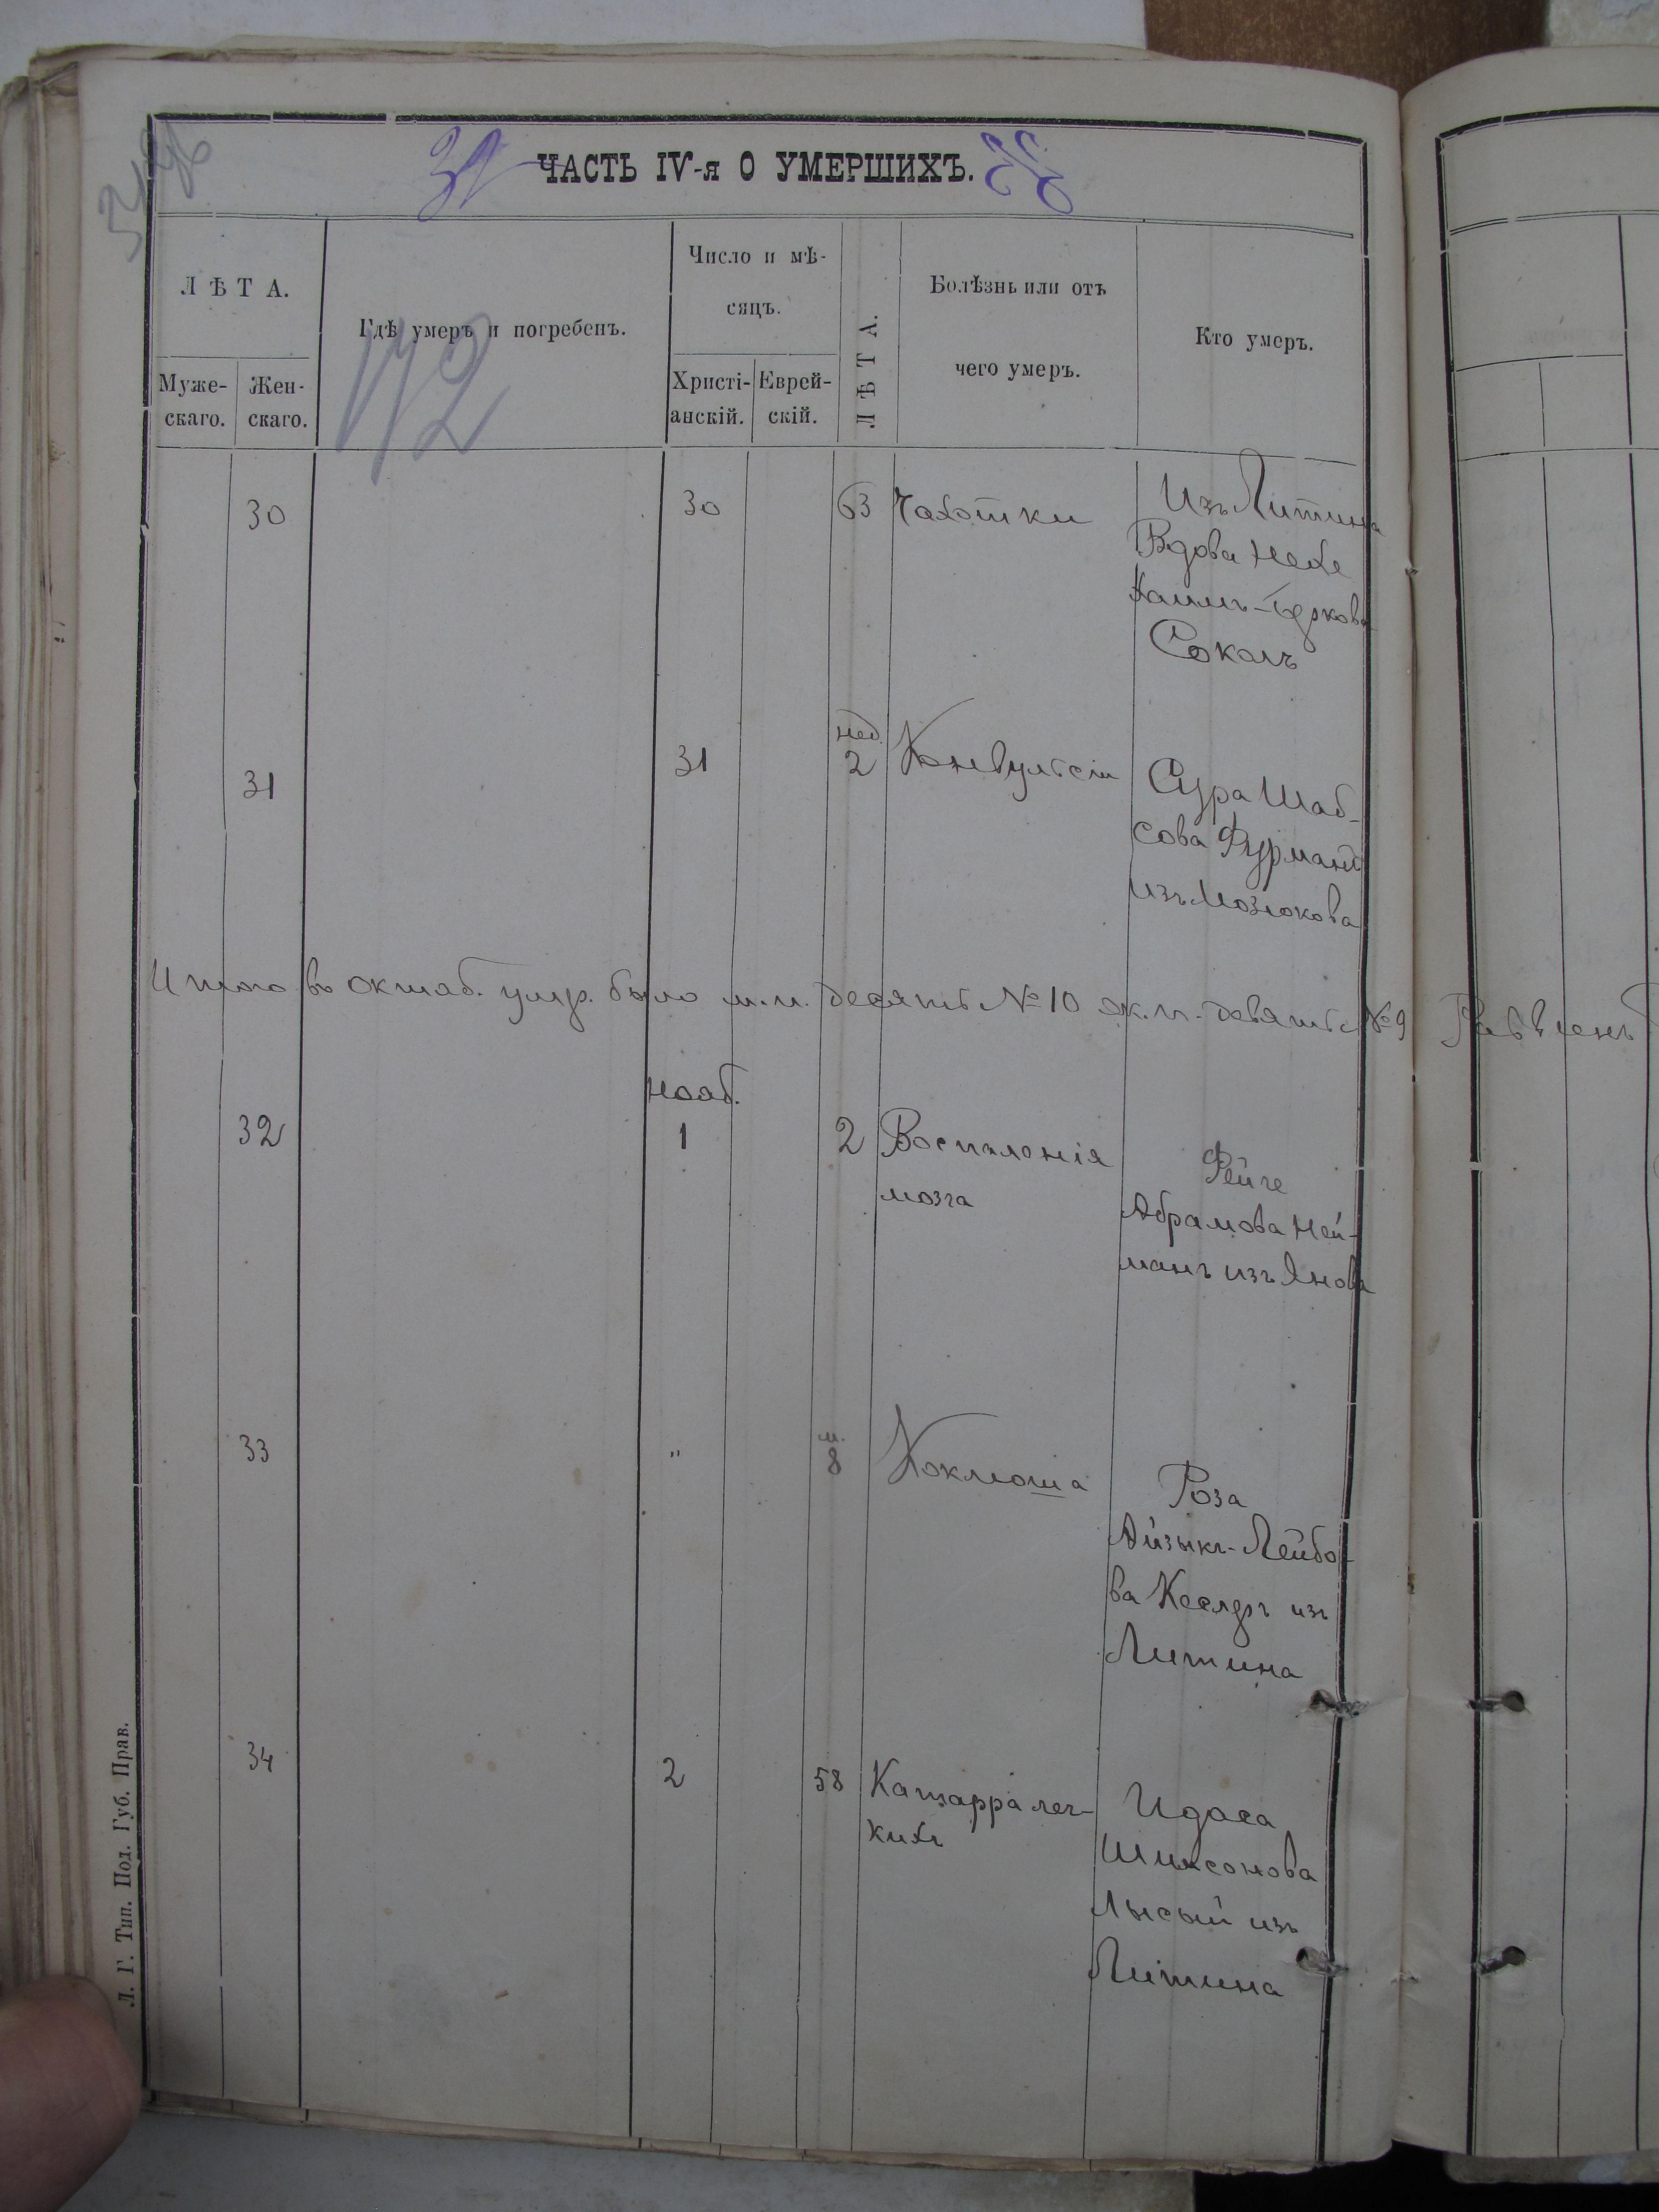 ЧАСТЬ IV-я О УМЕРШИХЪ.
ЛѢТА.
Муже-
скаго.
Жен-
скаго.
Гдѣ умеръ и погребенъ.
172
Число и мѣ-
сяцъ.
Христі-
анскій.
Еврей-
скій.
ЛѢТА.
Болѣзнь или отъ
чего умеръ.
Кто умеръ.
30 30 63 Чахотки Изъ Литина
Вдова Нехе
Хаимъ-Берков
Соколъ
нед.
31 31 2 Конвульсіи Сура Шаб-
сова Фурманъ
изъ
Итого въ октяб. умер. было м. п. десять № 10 ж. п. девять № 9
нояб.
32 1 2 Воспаленія Фейге
мозга Абрамова Ней-
манъ изъ Янова
м.
33 " 8 Коклюша Роза
Айзыкъ-Лейбо-
ва Кеслеръ изъ
Литина
34 2 58 Катарра лег- Идаса
кихъ Шимсонова
Лысый изъ
Литина
Л. Г. Тип. Под. Губ. Прав.